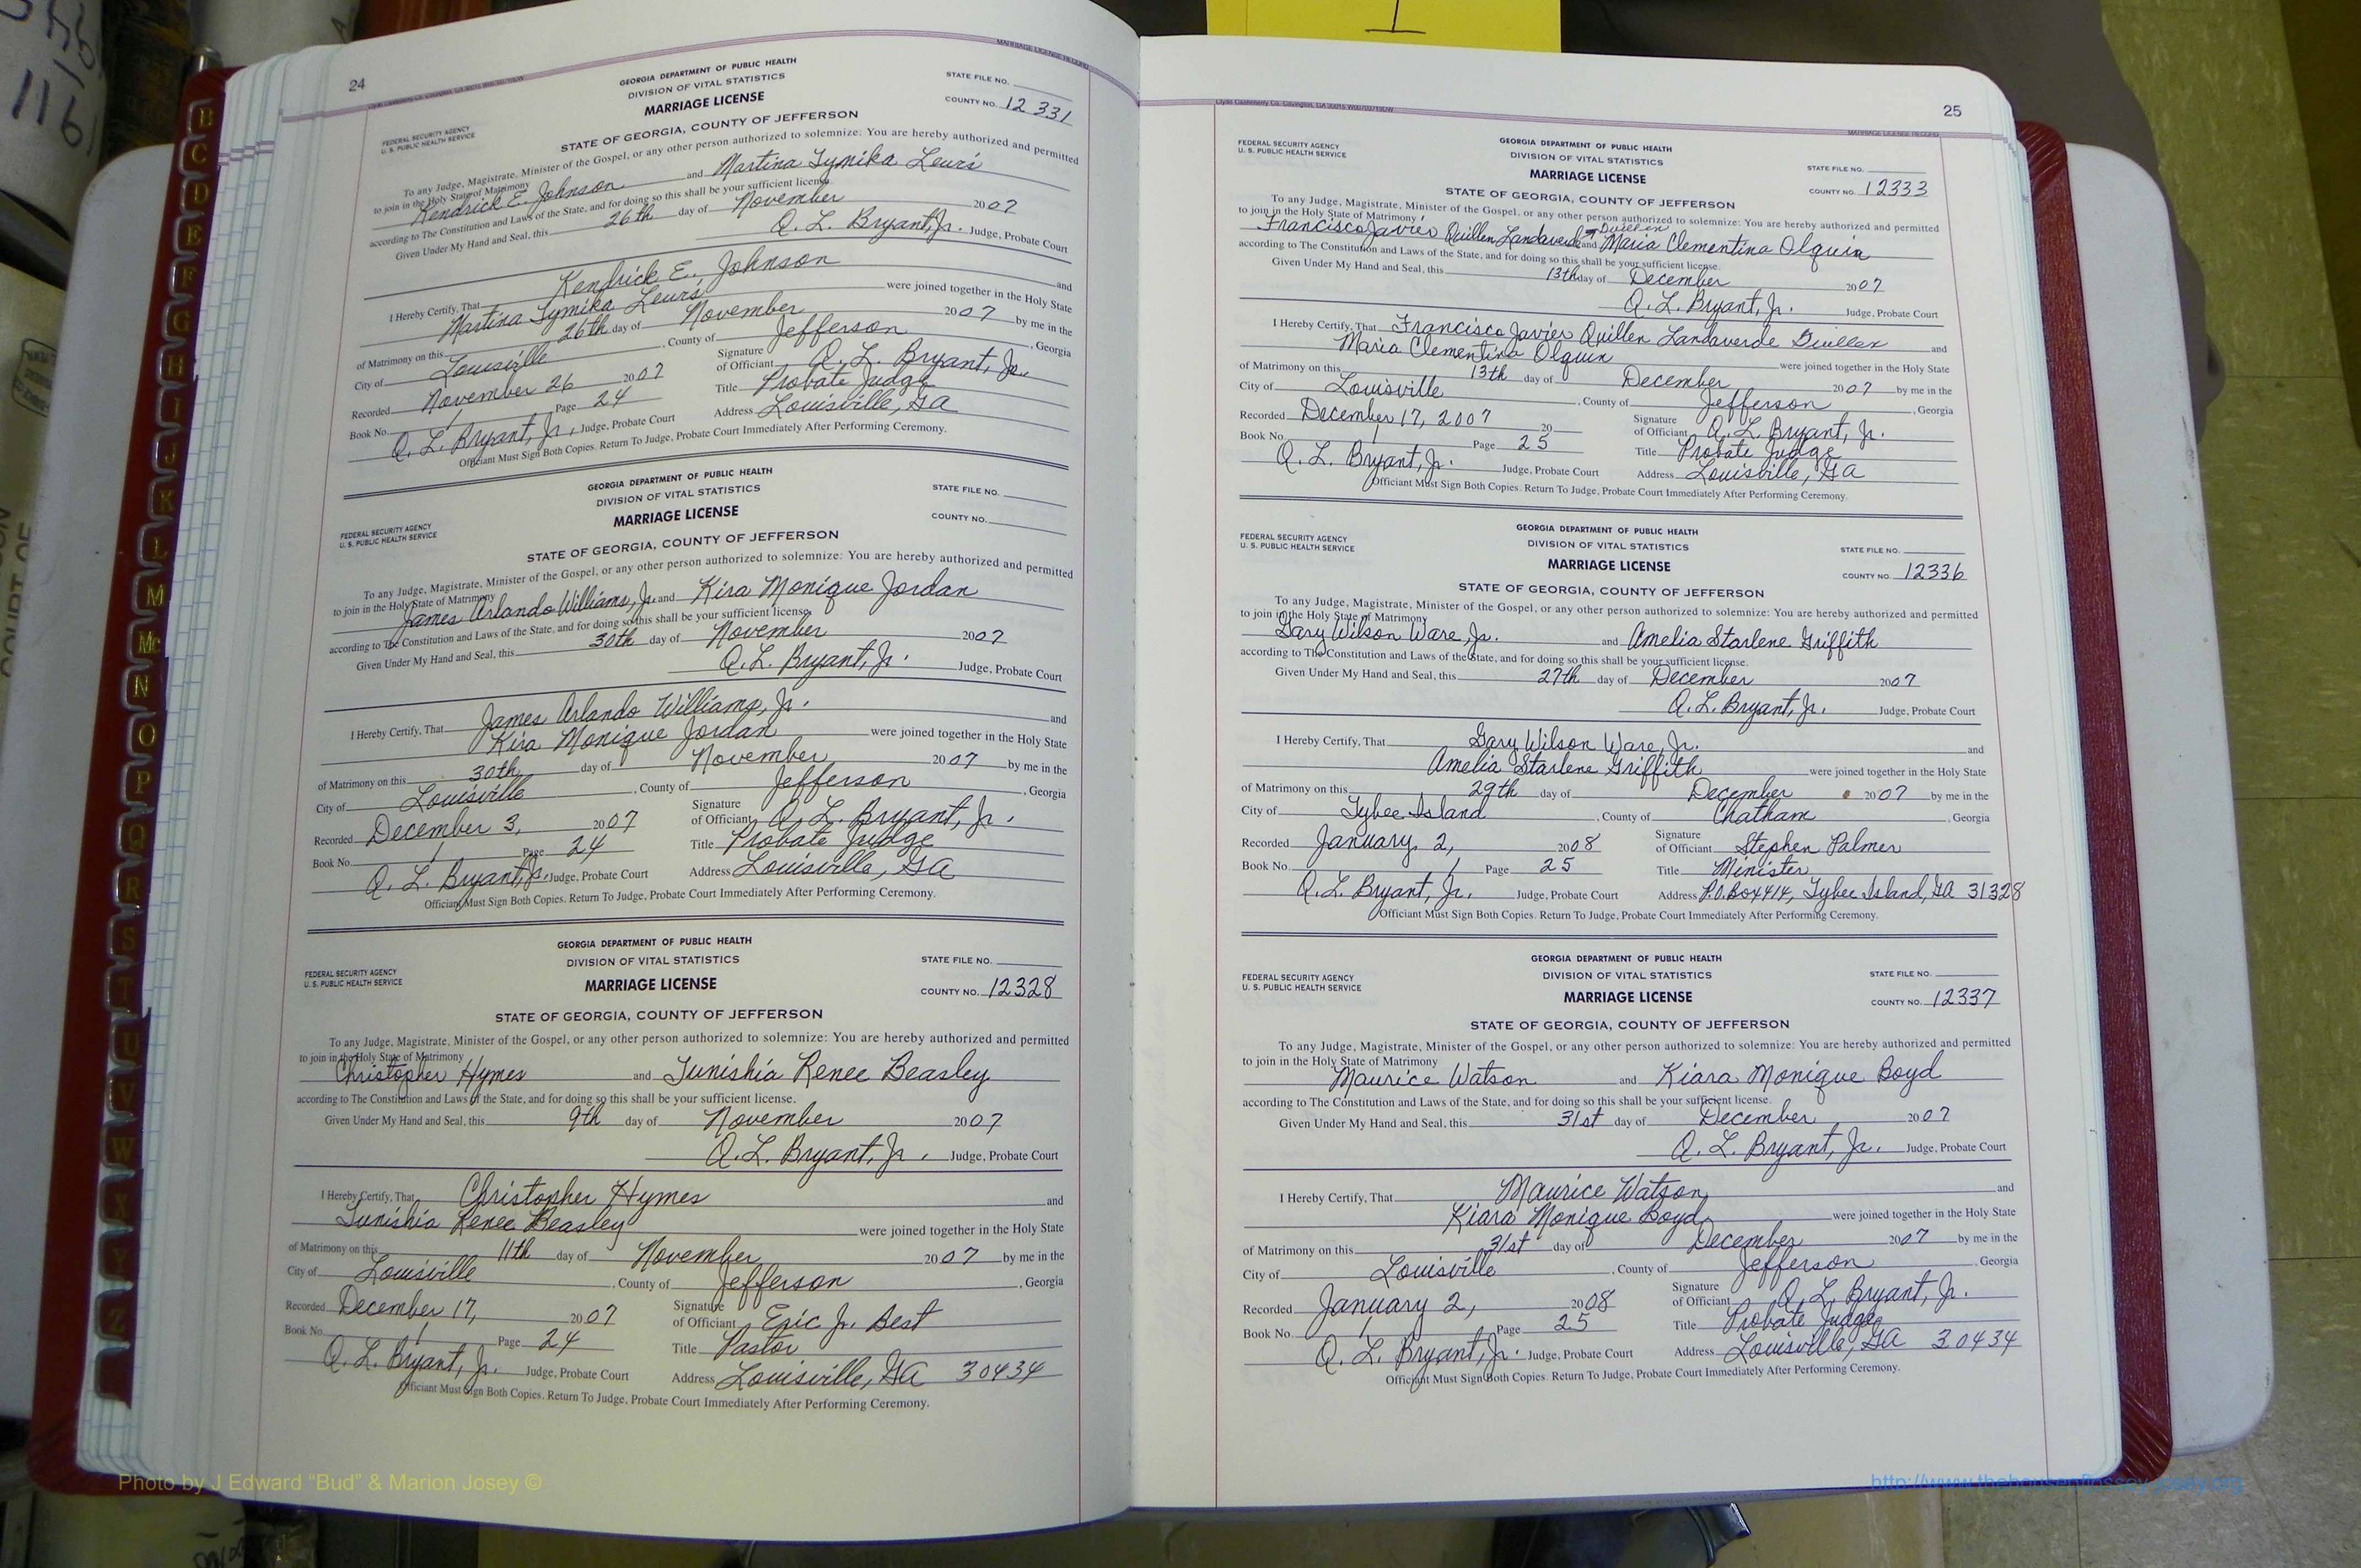 24
MARRIAGE LICENSE RECORD
GEORGIA DEPARTMENT OF PUBLIC HEALTH
DIVISION OF VITAL STATISTICS
MARRIAGE LICENSE
STATE FILE NO.
COUNTY NO. 12331
FEDERAL SECURITY AGENCY
U. S. PUBLIC HEALTH SERVICE
STATE OF GEORGIA, COUNTY OF JEFFERSON
To any Judge, Magistrate, Minister of the Gospel, or any other person authorized to solemnize: You are hereby authorized and permitted
to join in the Holy State of Matrimony
Kendrick E. Johnson and Martina Tymika Lewis
according to The Constitution and Laws of the State, and for doing so this shall be your sufficient license.
Given Under My Hand and Seal, this 26th day of November 2007
Q. L. Bryant, Jr. Judge, Probate Court
I Hereby Certify, That Kendrick E. Johnson and
Martina Tymika Lewis were joined together in the Holy State
of Matrimony on this 26th day of November 2007 by me in the
City of Louisville, County of Jefferson, Georgia
Recorded November 26 2007 Signature of Officiant Q. L. Bryant, Jr.
Book No. 1 Page 24 Title Probate Judge
Q. L. Bryant, Jr., Judge, Probate Court Address Louisville, GA
Officiant Must Sign Both Copies. Return To Judge, Probate Court Immediately After Performing Ceremony.
GEORGIA DEPARTMENT OF PUBLIC HEALTH
DIVISION OF VITAL STATISTICS
MARRIAGE LICENSE
STATE FILE NO.
COUNTY NO.
FEDERAL SECURITY AGENCY
U. S. PUBLIC HEALTH SERVICE
STATE OF GEORGIA, COUNTY OF JEFFERSON
To any Judge, Magistrate, Minister of the Gospel, or any other person authorized to solemnize: You are hereby authorized and permitted
to join in the Holy State of Matrimony
James Orlando Williams, Jr. and Kira Monique Jordan
according to The Constitution and Laws of the State, and for doing so this shall be your sufficient license.
Given Under My Hand and Seal, this 30th day of November 2007
Q. L. Bryant, Jr. Judge, Probate Court
I Hereby Certify, That James Orlando Williams, Jr. and
Kira Monique Jordan were joined together in the Holy State
of Matrimony on this 30th day of November 2007 by me in the
City of Louisville, County of Jefferson, Georgia
Recorded December 3, 2007 Signature of Officiant Q. L. Bryant, Jr.
Book No. 1 Page 24 Title Probate Judge
Q. L. Bryant, Jr. Judge, Probate Court Address Louisville, GA
Officiant Must Sign Both Copies. Return To Judge, Probate Court Immediately After Performing Ceremony.
GEORGIA DEPARTMENT OF PUBLIC HEALTH
DIVISION OF VITAL STATISTICS
MARRIAGE LICENSE
STATE FILE NO.
COUNTY NO. 12328
FEDERAL SECURITY AGENCY
U. S. PUBLIC HEALTH SERVICE
STATE OF GEORGIA, COUNTY OF JEFFERSON
To any Judge, Magistrate, Minister of the Gospel, or any other person authorized to solemnize: You are hereby authorized and permitted
to join in the Holy State of Matrimony
Christopher Hymes and Tunishia Renee Beasley
according to The Constitution and Laws of the State, and for doing so this shall be your sufficient license.
Given Under My Hand and Seal, this 9th day of November 2007
Q. L. Bryant, Jr. Judge, Probate Court
I Hereby Certify, That Christopher Hymes and
Tunishia Renee Beasley were joined together in the Holy State
of Matrimony on this 11th day of November 2007 by me in the
City of Louisville, County of Jefferson, Georgia
Recorded December 17, 2007 Signature of Officiant Eric Jr. Best
Book No. 1 Page 24 Title Pastor
Q. L. Bryant, Jr. Judge, Probate Court Address Louisville, GA 30434
Officiant Must Sign Both Copies. Return To Judge, Probate Court Immediately After Performing Ceremony.
25
MARRIAGE LICENSE RECORD
GEORGIA DEPARTMENT OF PUBLIC HEALTH
DIVISION OF VITAL STATISTICS
MARRIAGE LICENSE
STATE FILE NO.
COUNTY NO. 12333
FEDERAL SECURITY AGENCY
U. S. PUBLIC HEALTH SERVICE
STATE OF GEORGIA, COUNTY OF JEFFERSON
To any Judge, Magistrate, Minister of the Gospel, or any other person authorized to solemnize: You are hereby authorized and permitted
to join in the Holy State of Matrimony
Francisco Javier Quillen Landaverde and Maria Clementina Olquin
according to The Constitution and Laws of the State, and for doing so this shall be your sufficient license.
Given Under My Hand and Seal, this 13th day of December 2007
Q. L. Bryant, Jr. Judge, Probate Court
I Hereby Certify, That Francisco Javier Quillen Landaverde and
Maria Clementina Olquin were joined together in the Holy State
of Matrimony on this 13th day of December 2007 by me in the
City of Louisville, County of Jefferson, Georgia
Recorded December 17, 2007 20 Signature of Officiant Q. L. Bryant, Jr.
Book No. 1 Page 25 Title Probate Judge
Q. L. Bryant, Jr. Judge, Probate Court Address Louisville, GA
Officiant Must Sign Both Copies. Return To Judge, Probate Court Immediately After Performing Ceremony.
GEORGIA DEPARTMENT OF PUBLIC HEALTH
DIVISION OF VITAL STATISTICS
MARRIAGE LICENSE
STATE FILE NO.
COUNTY NO. 12336
FEDERAL SECURITY AGENCY
U. S. PUBLIC HEALTH SERVICE
STATE OF GEORGIA, COUNTY OF JEFFERSON
To any Judge, Magistrate, Minister of the Gospel, or any other person authorized to solemnize: You are hereby authorized and permitted
to join in the Holy State of Matrimony
Gary Wilson Ware, Jr. and Amelia Starlene Griffith
according to The Constitution and Laws of the State, and for doing so this shall be your sufficient license.
Given Under My Hand and Seal, this 27th day of December 2007
Q. L. Bryant, Jr. Judge, Probate Court
I Hereby Certify, That Gary Wilson Ware, Jr. and
Amelia Starlene Griffith were joined together in the Holy State
of Matrimony on this 29th day of December 2007 by me in the
City of Tybee Island, County of Chatham, Georgia
Recorded January 2, 2008 Signature of Officiant Stephen Palmer
Book No. 1 Page 25 Title Minister
Q. L. Bryant, Jr. Judge, Probate Court Address P.O. Box 414, Tybee Island, GA 31328
Officiant Must Sign Both Copies. Return To Judge, Probate Court Immediately After Performing Ceremony.
GEORGIA DEPARTMENT OF PUBLIC HEALTH
DIVISION OF VITAL STATISTICS
MARRIAGE LICENSE
STATE FILE NO.
COUNTY NO. 12337
FEDERAL SECURITY AGENCY
U. S. PUBLIC HEALTH SERVICE
STATE OF GEORGIA, COUNTY OF JEFFERSON
To any Judge, Magistrate, Minister of the Gospel, or any other person authorized to solemnize: You are hereby authorized and permitted
to join in the Holy State of Matrimony
Maurice Watson and Kiara Monique Boyd
according to The Constitution and Laws of the State, and for doing so this shall be your sufficient license.
Given Under My Hand and Seal, this 31st day of December 2007
Q. L. Bryant, Jr. Judge, Probate Court
I Hereby Certify, That Maurice Watson and
Kiara Monique Boyd were joined together in the Holy State
of Matrimony on this 31st day of December 2007 by me in the
City of Louisville, County of Jefferson, Georgia
Recorded January 2, 2008 Signature of Officiant Q. L. Bryant, Jr.
Book No. 1 Page 25 Title Probate Judge
Q. L. Bryant, Jr. Judge, Probate Court Address Louisville, GA 30434
Officiant Must Sign Both Copies. Return To Judge, Probate Court Immediately After Performing Ceremony.
B
C
D
E
F
G
H
I
J
K
L
M
Mc
N
O
P
Q
R
S
T
U
V
W
X
Y
Z
Photo by J Edward “Bud” & Marion Josey ©